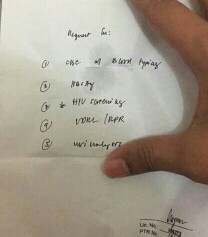 Request for:
① CBC w/ Blood typing
② HBsAg
③ HIV screening
④ VDRL / RPR
⑤ urinalysis
Lic. No.
PTR No.